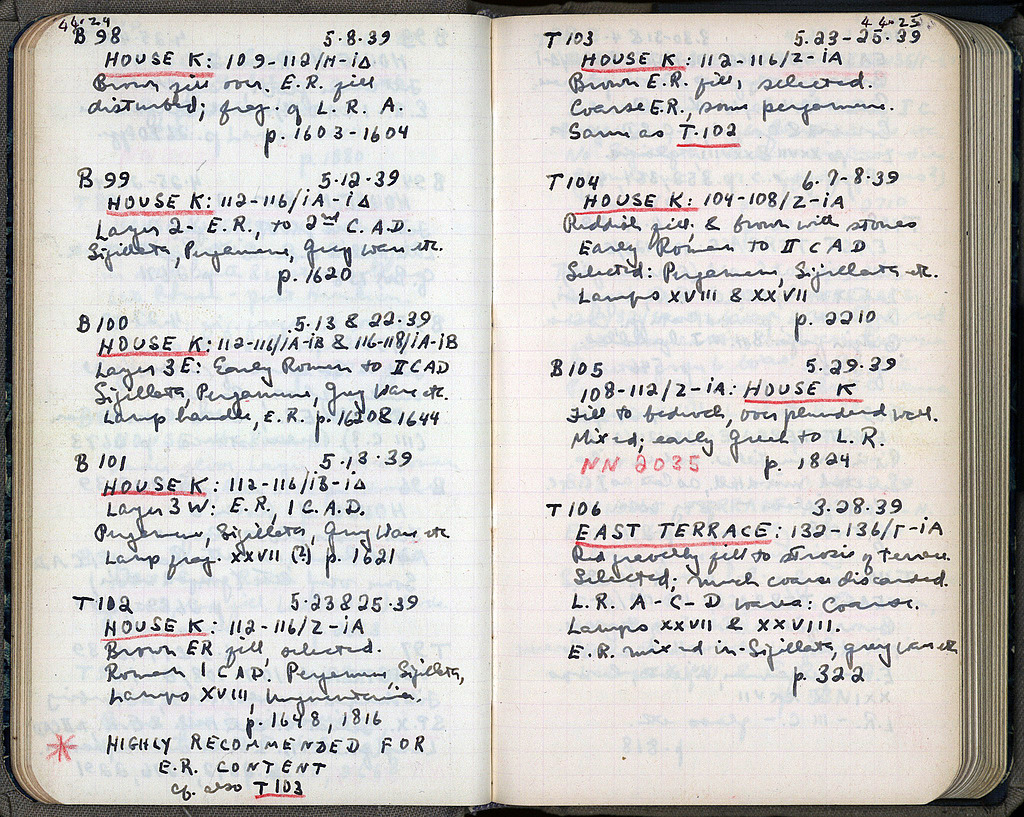 44-24
B 98 5-8-39
HOUSE K: 109-112/H-iΔ
Brown fill over E.R. fill
disturbed; frag. of L.R. A.
p. 1603-1604
B 99 5-12-39
HOUSE K: 112-116/iA-iΔ
Layer 2 - E.R., to 2nd C. A.D.
Sigillata, Pergamene, Grey Ware etc.
p. 1620
B 100 5-13 & 22-39
HOUSE K: 112-116/iA-iB & 116-118/iA-iB
Layer 3 E: Early Roman to II C AD
Sigillata, Pergamene, Grey Ware etc.
Lamp handle, E.R. p. 1620 & 1644
B 101 5-13-39
HOUSE K: 112-116/iB-iΔ
Layer 3 W: E.R., 1 C. A.D.
Pergamene, Sigillata, Grey Ware etc
Lamp frag. XXVII (?) p. 1621
T 102 5-23 & 25-39
HOUSE K: 112-116/Z-iA
Brown ER fill, selected.
Roman 1 C AD, Pergamene, Sigillata,
Lamps XVIII, Unguentaria.
p. 1648, 1816
* HIGHLY RECOMMENDED FOR
E.R. CONTENT
cf. also T 103
44-25
T 103 5-23-25-39
HOUSE K: 112-116/Z-iA
Brown E.R. fill, selected.
Coarse E.R., some pergamene.
Same as T.102
T 104 6-7-8-39
HOUSE K: 104-108/Z-iA
Reddish fill, & brown with stones
Early Roman to II C A D
Selected: Pergamene, Sigillata etc.
Lamps XVIII & XXVII
p. 2210
B 105 5-29-39
108-112/Z-iA: HOUSE K
Fill to bedrock, over plundered wall.
Mixed; early Greek to L. R.
NN 2035 p. 1824
T 106 3-28-39
EAST TERRACE: 132-136/Γ-iA
Red gravelly fill to of terrace.
Selected; much coarse discarded.
L.R. A-C-D wares: Coarse.
Lamps XXVII & XXVIII.
E.R. mixed in - Sigillata, grey ware etc
p. 322